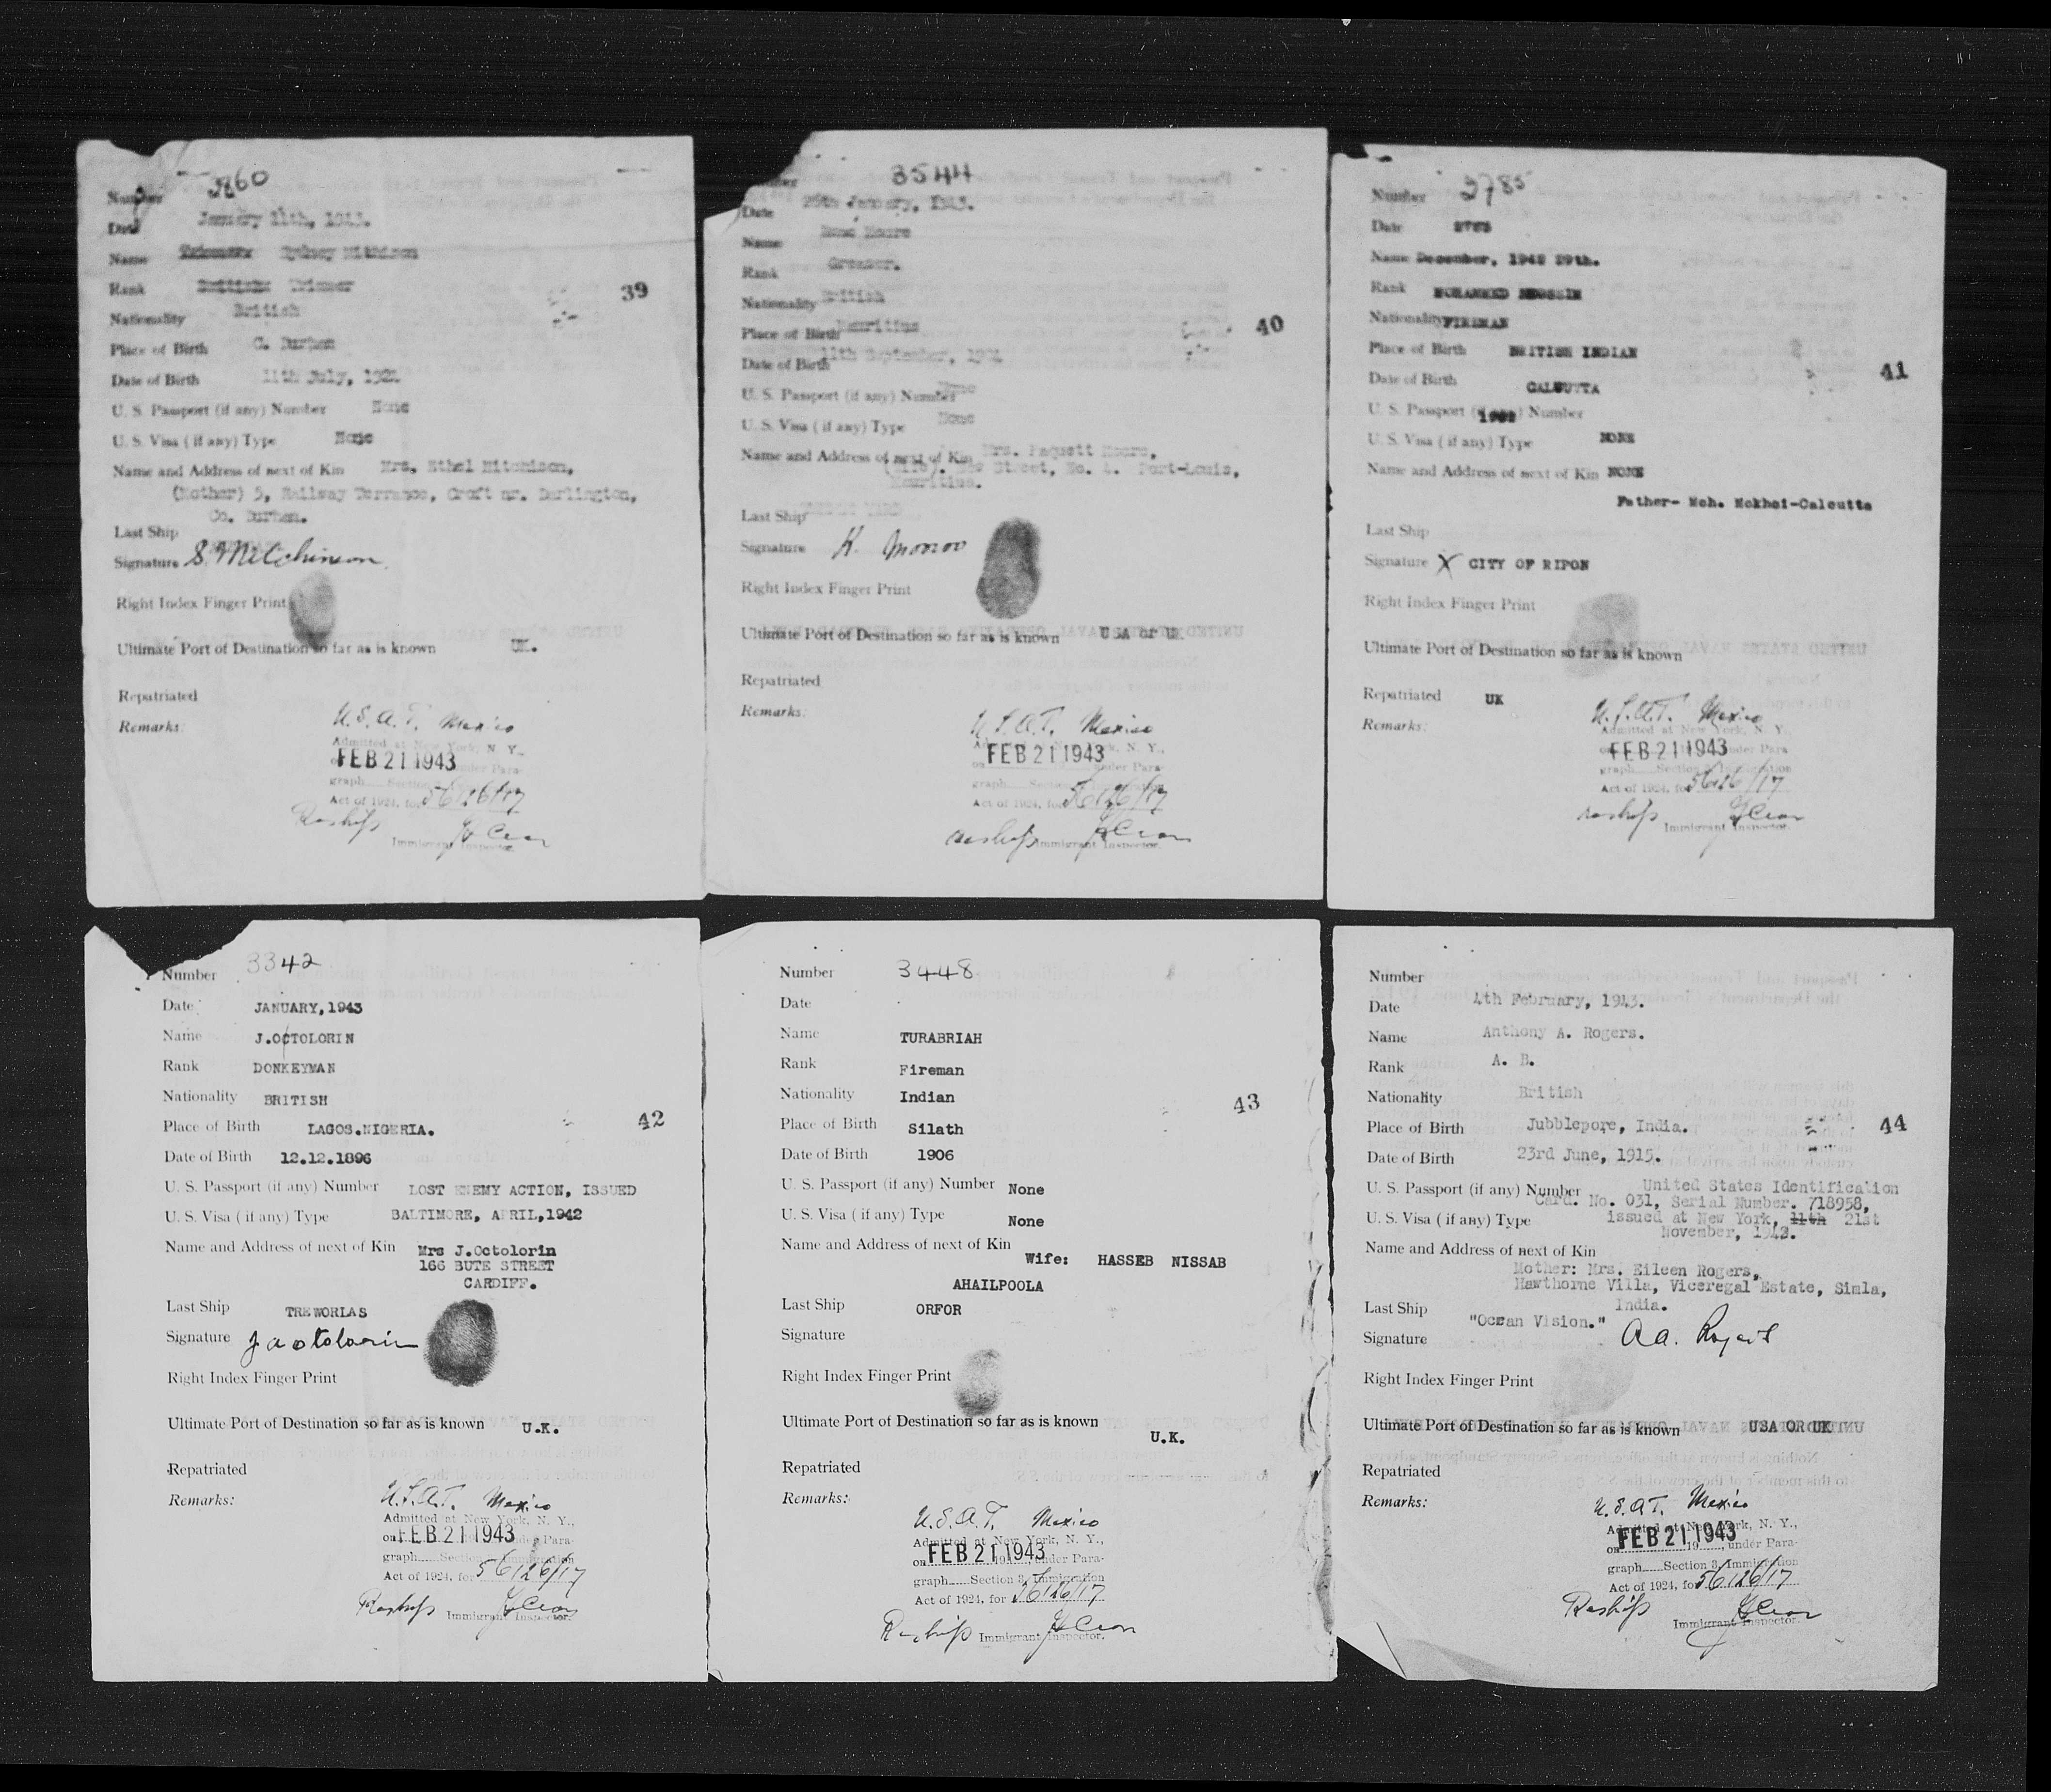 Number 3160
Date January 11th, 1943.
Name Trimmer Sydney Mitchison
Rank British Trimmer
39
Nationality British
Place of Birth C. Durham
Date of Birth 11th July, 192
U. S. Passport (if any) Number None
U. S. Visa ( if any) Type None
Name and Address of next of Kin Mrs, Ethel Mitchison,
(Mother) 5, Railway Terrance, Croft nr. Darlington,
Co. Durham.
Last Ship
Signature S. Mitchinson
Right Index Finger Print
Ultimate Port of Destination so far as is known UK.
Repatriated
Remarks:
U.S.A.T. Mexico
Admitted at New York, N. Y.,
on FEB 21 1943 under Para-
graph Section
Act of 1924, for 56126/17
Reships
Immigrant Inspector.
Number 3544
Date 25th January, 1943.
Name Moore
Rank Greaser.
Nationality British
Place of Birth Mauritius
40
Date of Birth 11th September, 19
U. S. Passport (if any) Number None
U. S. Visa ( if any) Type None
Name and Address of next of Kin Mrs. Paquett Moore,
(Wife). Street, No. 4. Port-Louis,
Mauritius.
Last Ship
Signature K.
Right Index Finger Print
Ultimate Port of Destination so far as is known USA or UK
Repatriated
Remarks:
U.S.A.T. Mexico
FEB 21 1943 N. Y.,
on under Para-
graph Section
Act of 1924, for 56126/17
reships
Immigrant Inspector.
Number 3785
Date 3785
Name December, 1942 29th.
Rank MOHAMMED HUSSEIN
Nationality FIREMAN
Place of Birth BRITISH INDIAN
41
Date of Birth CALCUTTA
U. S. Passport (if any) Number 1902
U. S. Visa ( if any) Type NONE
Name and Address of next of Kin NONE
Father- Moh. Mokhei-Calcutta
Last Ship
Signature X CITY OF RIPON
Right Index Finger Print
Ultimate Port of Destination so far as is known
Repatriated UK
Remarks:
U.S.A.T. Mexico
Admitted at New York, N. Y.,
on FEB 21 1943 under Para-
graph Section 3, Immigration
Act of 1924, for 56126/17
reships
Immigrant Inspector.
Number 3342
Date JANUARY,1943
Name J.OCTOLORIN
Rank DONKEYMAN
Nationality BRITISH
42
Place of Birth LAGOS.NIGERIA.
Date of Birth 12.12.1896
U. S. Passport (if any) Number LOST ENEMY ACTION, ISSUED
U. S. Visa ( if any) Type BALTIMORE, APRIL,1942
Name and Address of next of Kin Mrs J.Octolorin
166 BUTE STREET
CARDIFF.
Last Ship TREWORLAS
Signature J octolorin
Right Index Finger Print
Ultimate Port of Destination so far as is known U.K.
Repatriated
Remarks:
U.S.A.T. Mexico
Admitted at New York, N. Y.,
on FEB 21 1943 under Para-
graph Section Immigration
Act of 1924, for 56126/17
Reships
Immigrant Inspector.
Number 3448
Date
Name TURABRIAH
Rank Fireman
Nationality Indian
43
Place of Birth Silath
Date of Birth 1906
U. S. Passport (if any) Number None
U. S. Visa ( if any) Type None
Name and Address of next of Kin
Wife: HASSEB NISSAB
AHAILPOOLA
Last Ship ORFOR
Signature
Right Index Finger Print
Ultimate Port of Destination so far as is known
U.K.
Repatriated
Remarks:
U.S.A.T. Mexico
Admitted at New York, N. Y.,
on FEB 21 1943 under Para-
graph Section 3, Immigration
Act of 1924, for 56126/17
Reships
Immigrant Inspector.
Number
Date 4th February, 1943.
Name Anthony A. Rogers.
Rank A. B.
Nationality British
Place of Birth Jubblepore, India.
44
Date of Birth 23rd June, 1915.
U. S. Passport (if any) Number United States Identification
Card. No. 031, Serial Number. 718958,
U. S. Visa ( if any) Type issued at New York, 11th 21st
November, 1942.
Name and Address of next of Kin
Mother: Mrs. Eileen Rogers,
Hawthorne Villa, Viceregal Estate, Simla,
India.
Last Ship "Ocean Vision."
Signature A a. Rogers
Right Index Finger Print
Ultimate Port of Destination so far as is known USA OR UK
Repatriated
Remarks:
U.S.A.T. Mexico
Admitted at New York, N. Y.,
on FEB 21 1943 19 , under Para-
graph Section 3, Immigration
Act of 1924, for 56126/17
Reships
Immigrant Inspector.